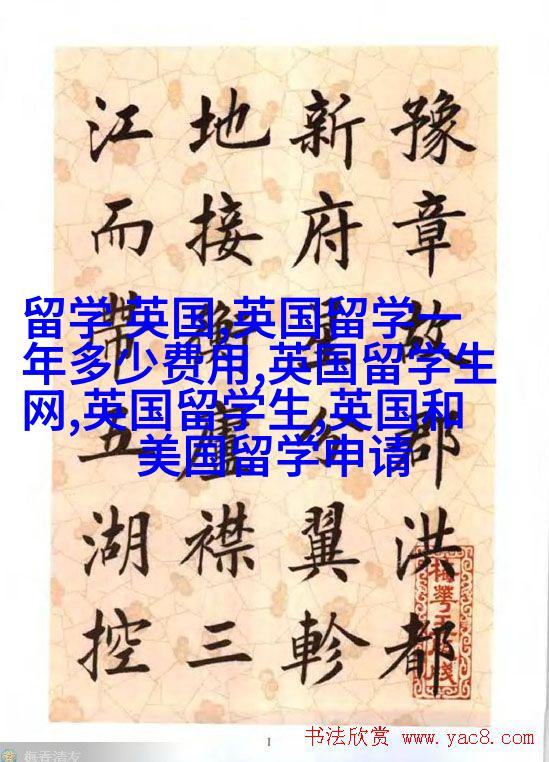 豫章故郡洪都
新府星分翼軫
地接衡廬襟三
江而帶五湖控
留学 英国,英国留学一
年多少费用,英国留学生
网,英国留学生,英国和
美国留学申请
1
书法欣赏 www.yac8.com